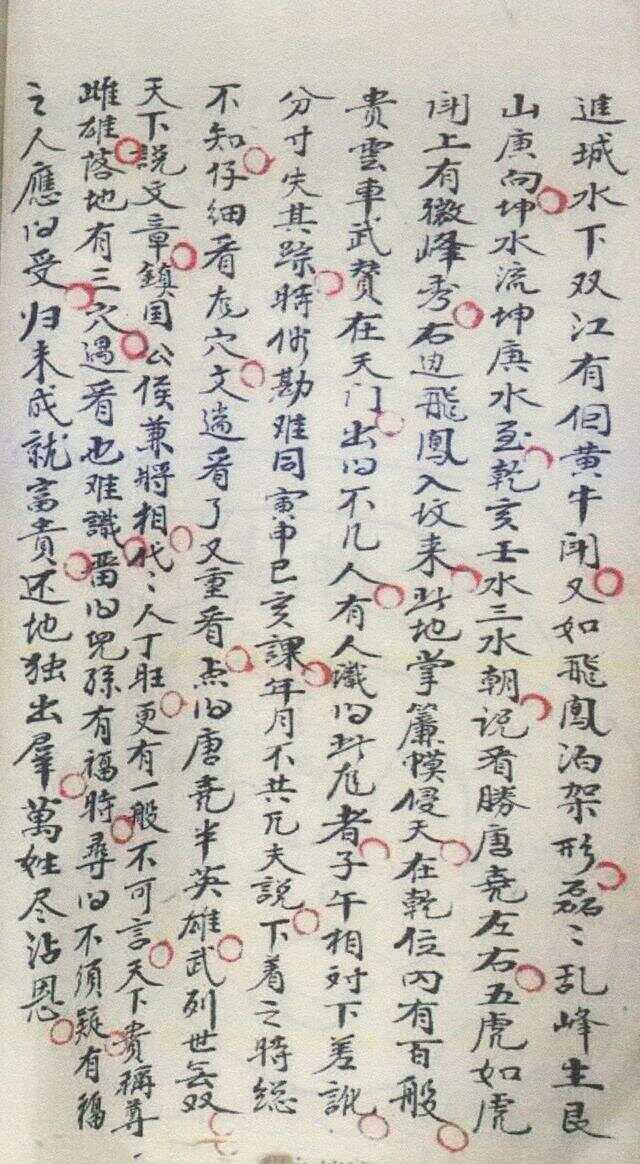 進城水下双江有個黄牛閗又如飛鳳沟架形磊〻乱峰生艮
山庚向坤水流坤庚水至乾亥壬水三水朝说看勝唐堯左右五虎如虎
閗上有徽峰秀右边飛鳳入坟来此地掌簾幙侵天在乾位内有百般
贵雲車武賛在天门出㝵不凡人有人識㝵此穴者子午相对下差訛
分寸失其踪時俗勘难同寅申巳亥課年月不共凡夫説下着之時総
不知仔细看龙穴文遍看了又重看点㝵唐堯半英雄武列世無双
天下説文章鎮国公侯兼將相代〻人丁旺更有一般不可言天下貴稱尊
雌雄落地有三穴遇看也难識畱㝵兒孫有福時尋㝵不須疑有福
之人應㝵受归来成就富貴还地独出羣萬姓尽沾恩